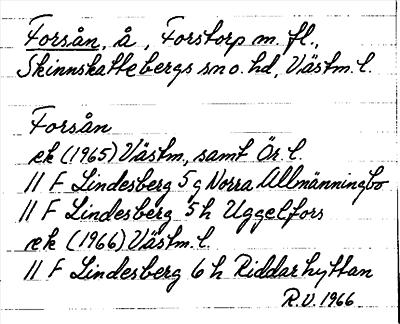 Forsån, å, Forstorp m. fl.,
Skinnskattebergs sn o. hd, Västm. l.
Forsån
ek (1965) Västm, samt Ör. l.
11 F Lindesberg 5 g Norra Allmänningbo
11 F Lindesberg 5 h Uggelfors
ek (1966) Västm. l.
11 F Lindesberg 6 h Riddarhyttan
R.V. 1966